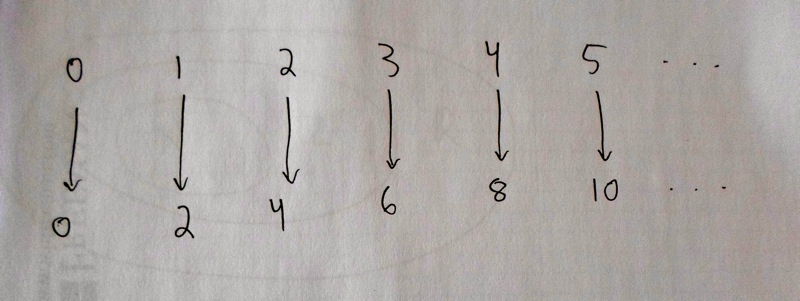 0 1 2 3 4 5 ...
0 2 4 6 8 10 ....